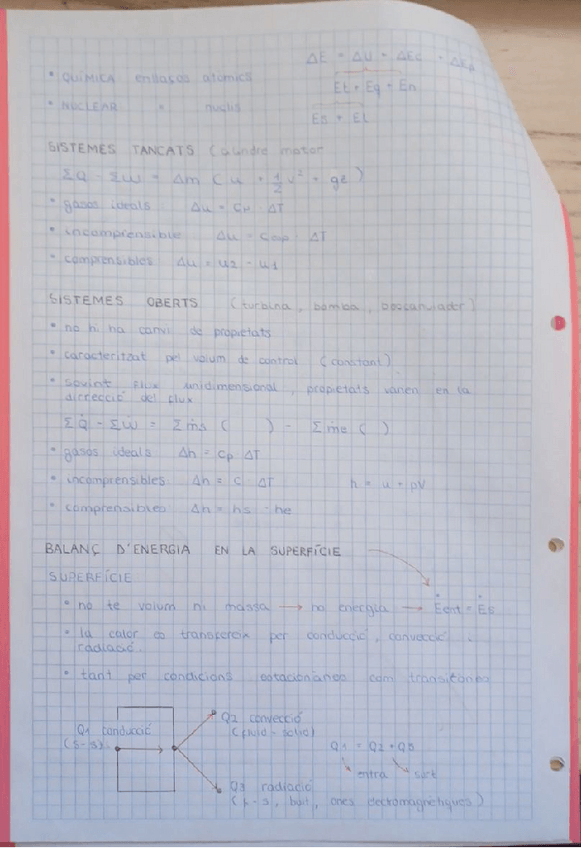 ΔE = ΔU + ΔEc + ΔEp
• QUÍMICA enllaços atòmics
Et + Eq + En
• NUCLEAR " nuclis
Es + El
SISTEMES TANCATS (cilindre motor
ΣQ - ΣW = Δm (u + 1/2 v² + gz)
• gasos ideals Δu = Cv · ΔT
• incomprensible Δu = ΔT
• comprensibles Δu = u2 - u1
SISTEMES OBERTS (turbina, bomba, bescanviador)
• no hi ha canvi de propietats
• caracteritzat pel volum de control (constant)
• sovint flux unidimensional, propietats varien en la
direcció del flux
ΣQ̇ - ΣẆ = Σṁs ( ) - Σṁe ( )
• gasos ideals Δh = Cp ΔT
• incomprensibles Δh = C ΔT h = u + pV
• comprensibles Δh = hs - he
BALANÇ D'ENERGIA EN LA SUPERFÍCIE
SUPERFÍCIE
• no te volum ni massa → no energia → Ėent = Ės
• la calor es transfereix per conducció, convecció i
radiació.
• tant per condicions estacionàries com transitòries
Q2 convecció
(fluid - sòlid)
Q1 conducció
(s-s)
Q1 = Q2 + Q3
entra surt
Q3 radiació
(f-s, buit, ones electromagnètiques)